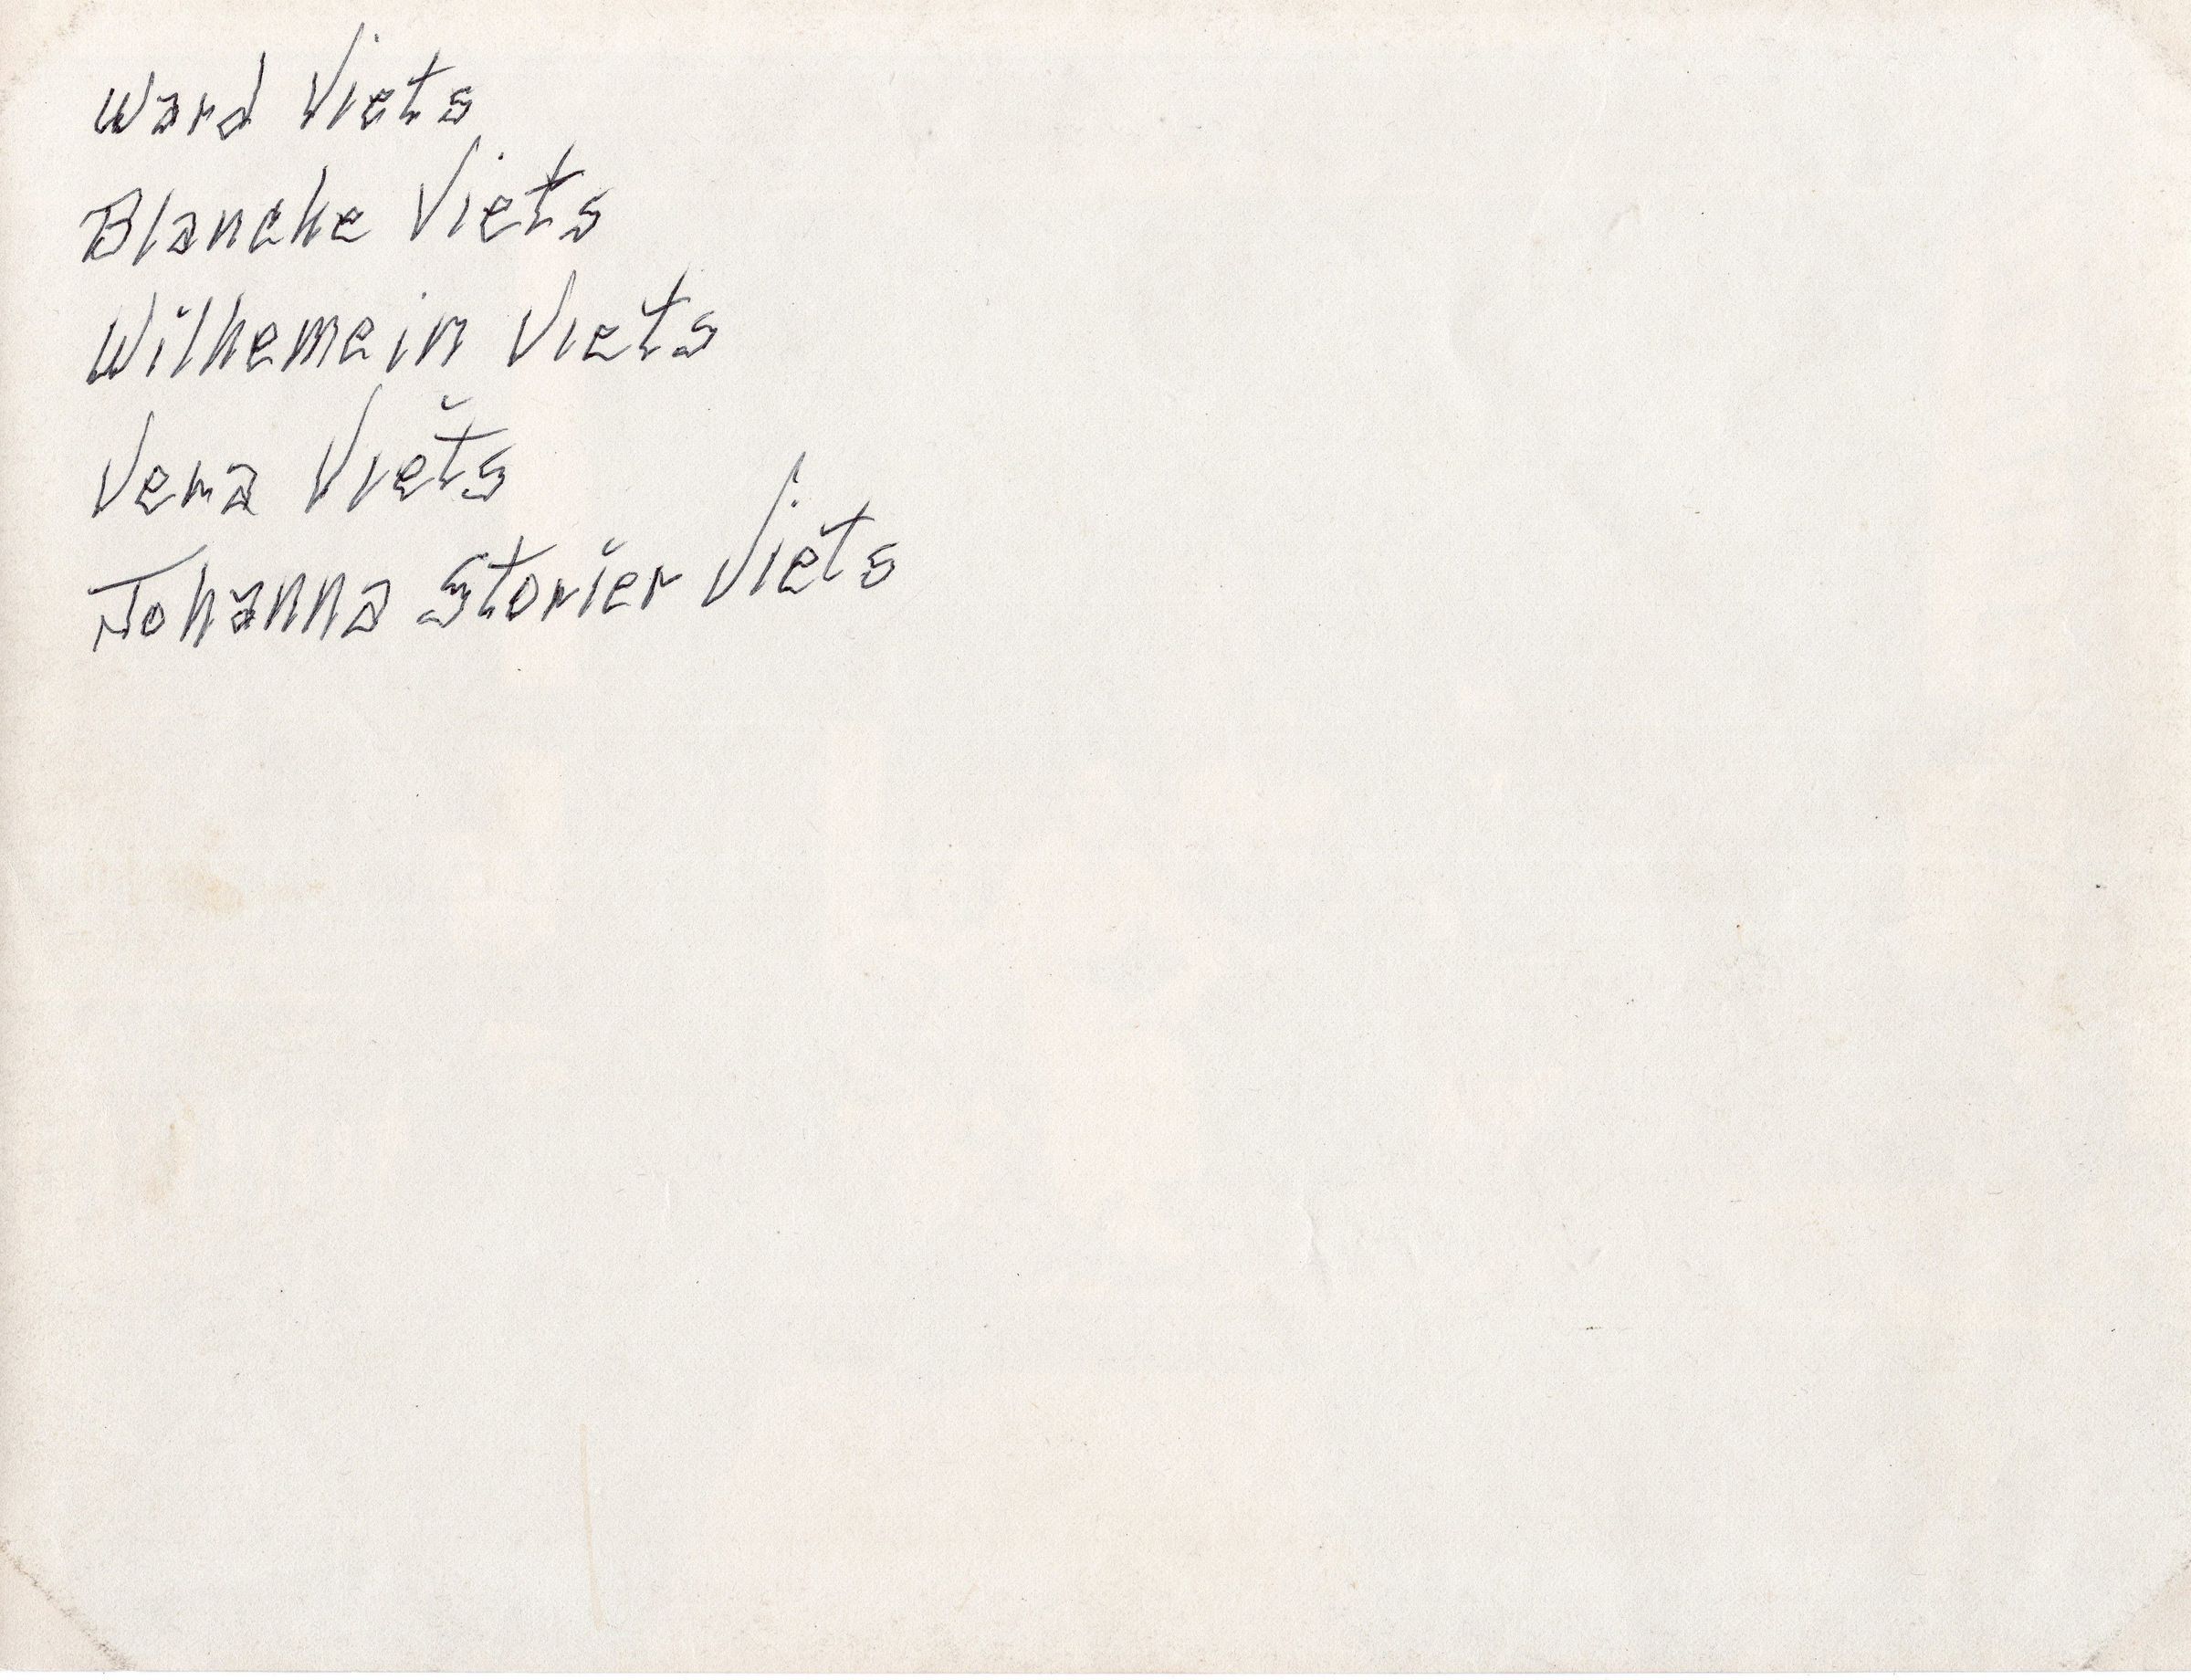 Ward Viets
Blanche Viets
Wilhemein Viets
Vera Viets
Johanna Storier Viets